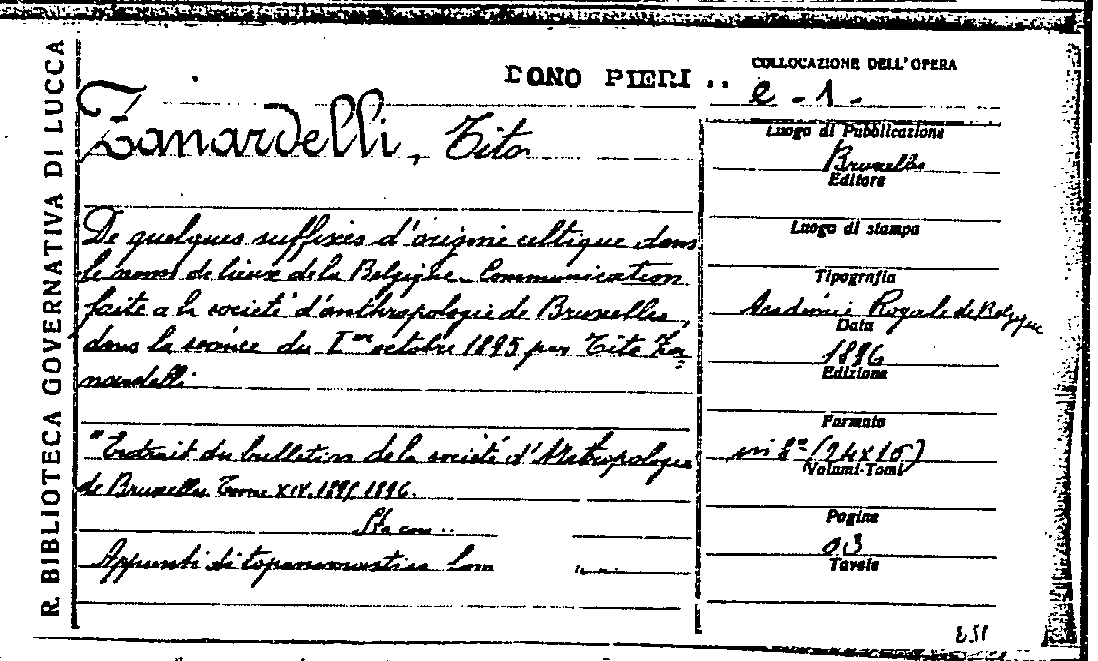 R. BIBLIOTECA GOVERNATIVA DI LUCCA
DONO PIERI ..
Zanardelli, Tito
De quelques suffixes d'origine celtique dans
le noms de lieux de la Belgique. Communication
faite a la societé d'anthropologie de Bruxelles,
dans la séance du Ier octobre 1895 par Tito Za=
nardelli
"Extrait du bulletin de la société d'
de Bruxelles Tome XIV. 1895 1896.
Sta con ..
Appunti di toponomastica
COLLOCAZIONE DELL'OPERA
e - 1 -
Luogo di Pubblicazione
Bruxelles
Editore
Luogo di stampa
Tipografia
Académie Royale de Belgique
Data
1896
Edizione
Formato
in 8° (24x16)
Volumi-Tomi
Pagine
Tavole